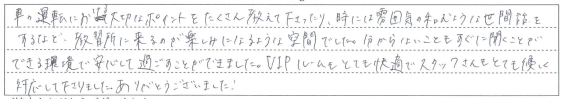 車の運転に必要な大切なポイントをたくさん教えて下さったり、時には雰囲気の和むような世間話を
するなど、教習所に来るのが楽しみになるような空間でした。分からないこともすぐに聞くことが
できる環境で安心して過ごすことができました。VIPルームもとても快適でスタッフさんもとても優しく
対応して下さりました。ありがとうございました!